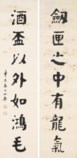 劍匣之中有龍氣
酒盃以外如鴻毛